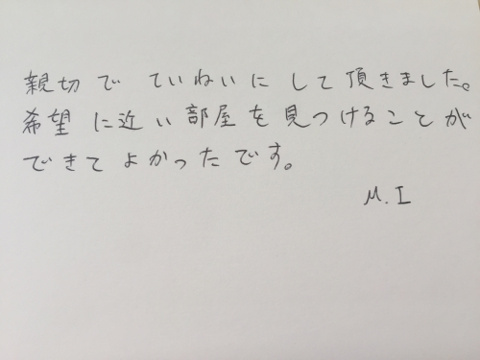 親切で ていねいに して頂きました。
希望に近い部屋を見つけることが
できてよかったです。
M.I